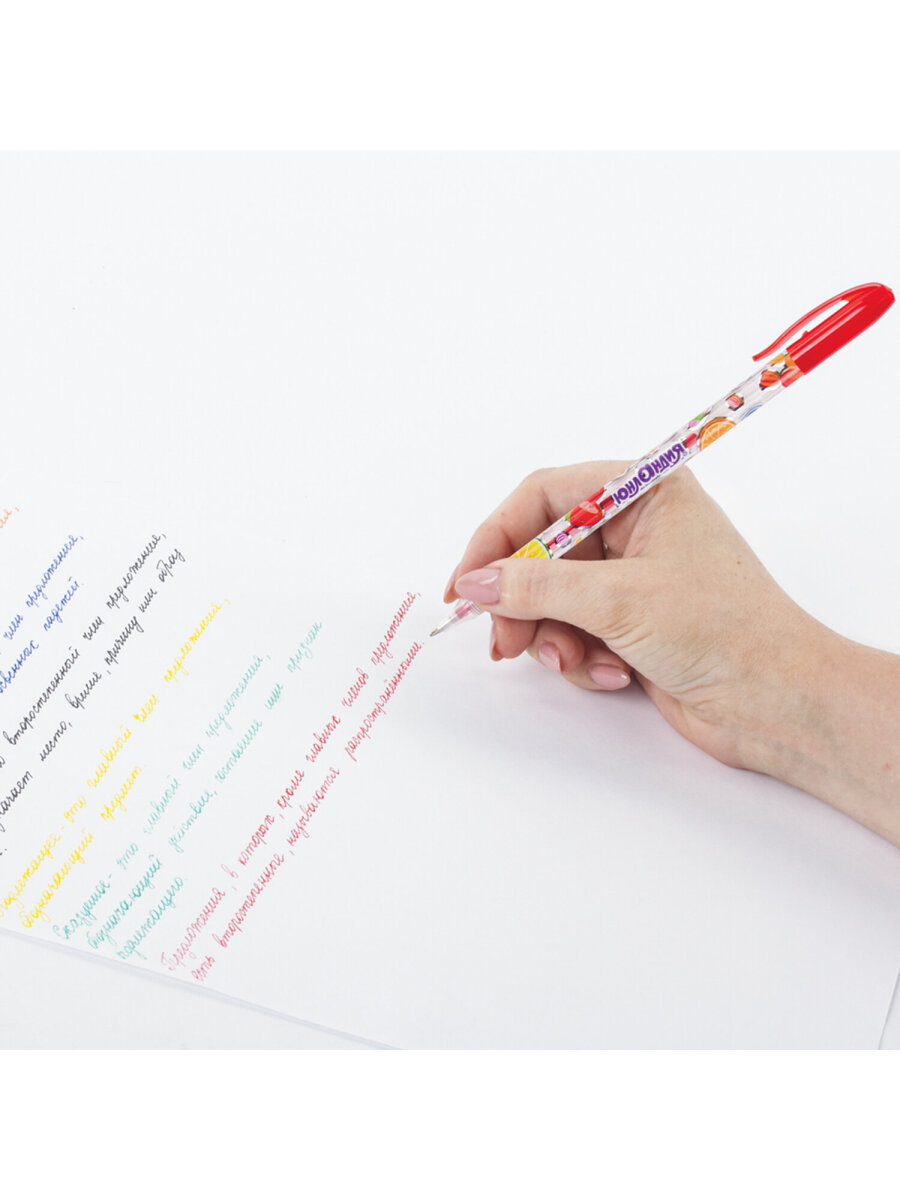 ия,
член предложения,
косвенных падежей.
второстепенный член предложения,
начает место, время, причину или образ
Подлежащее - это главный член предложения,
обозначающий предмет.
Сказуемое - это главный член предложения,
обозначающий действие, состояние или признак
подлежащего.
Предложения, в которых, кроме главных членов предложения,
есть второстепенные, называются распространёнными
ЮНЛАНДИЯ